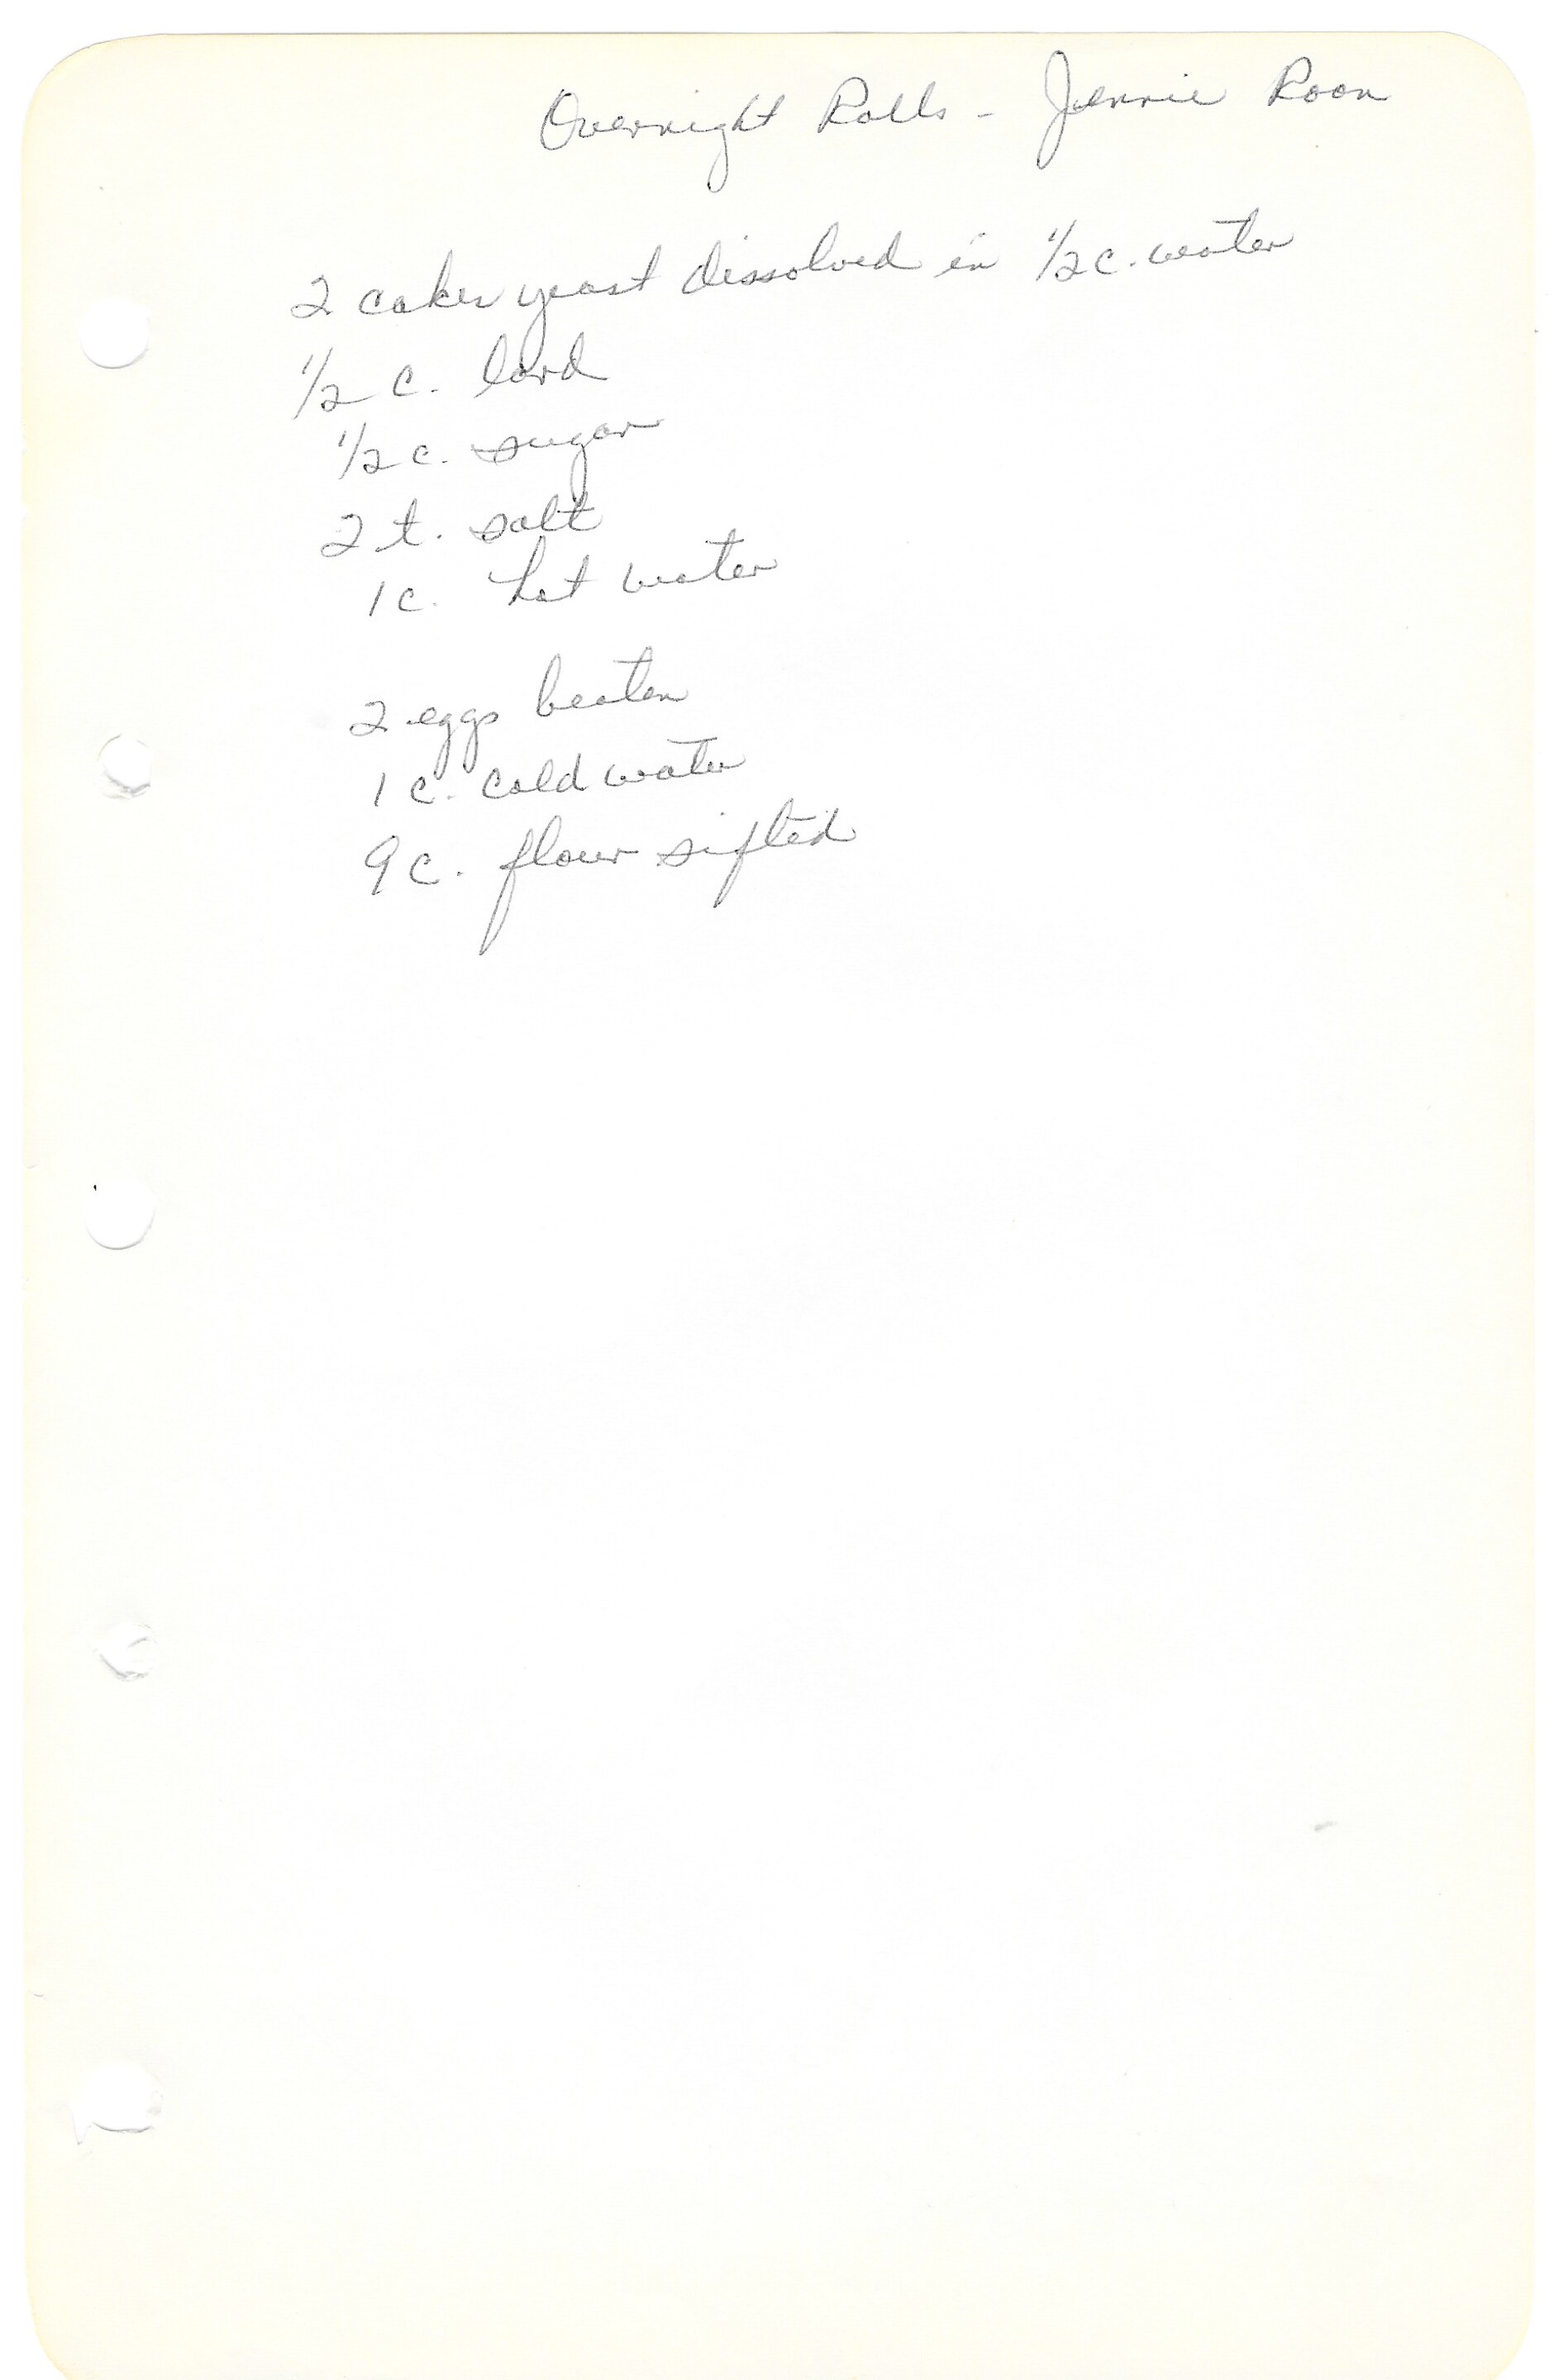 Overnight Rolls - Jennie Roon
2 cakes yeast dissolved in 1/2 c. water
1/2 c. lard
1/2 c. sugar
2 t. salt
1 c. hot water
2 eggs beaten
1 c. cold water
9 c. flour sifted